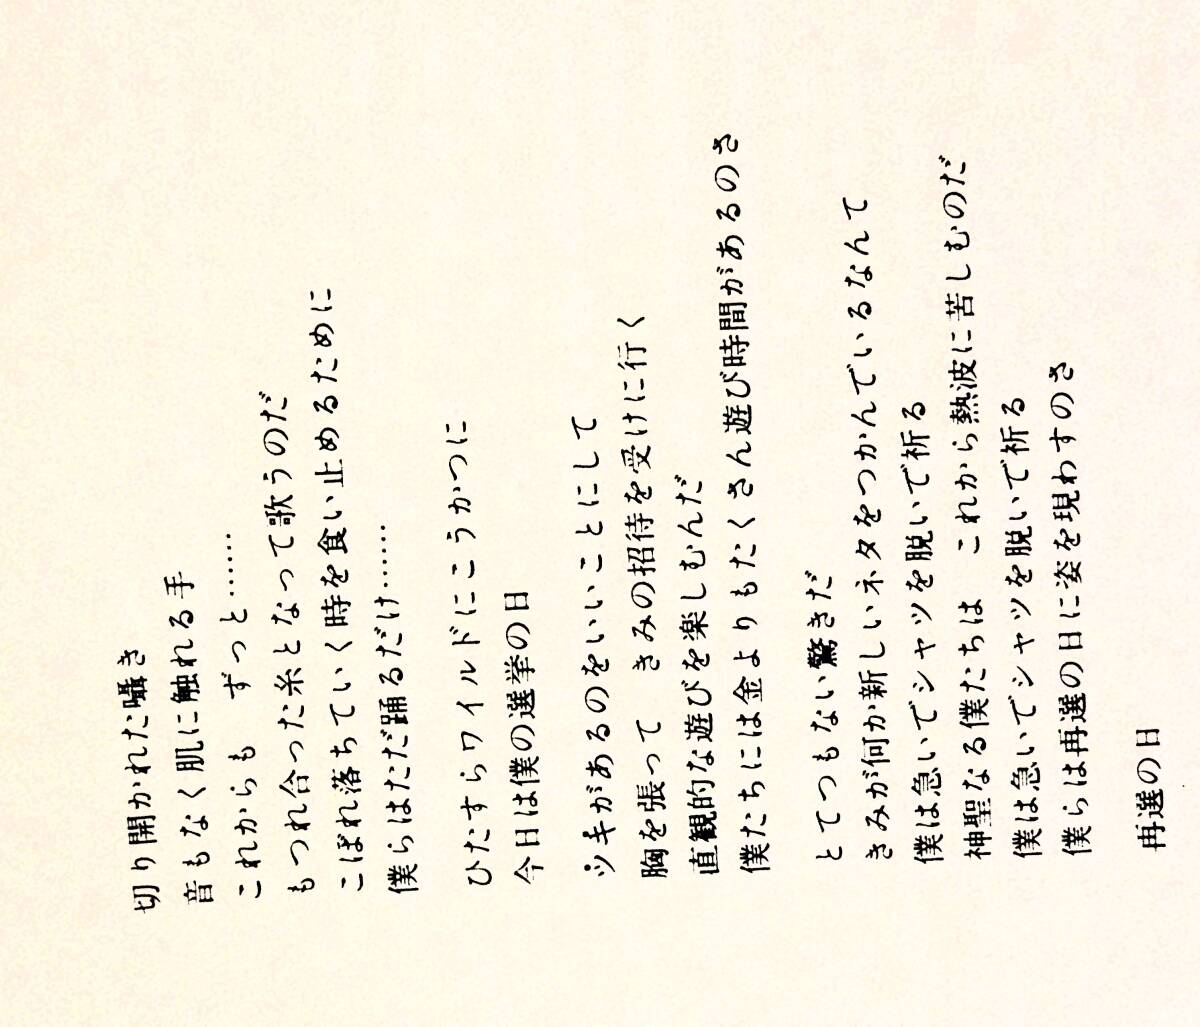 切り開かれた囁き
音もなく肌に触れる手
これからも　ずっと……
もつれ合った糸となって歌うのだ
こぼれ落ちていく時を食い止めるために
僕らはただ踊るだけ……
ひたすらワイルドにこうかつに
今日は僕の選挙の日
ツキがあるのをいいことにして
胸を張って　きみの招待を受けに行く
直観的な遊びを楽しむんだ
僕たちには金よりもたくさん遊び時間があるのさ
とてつもない驚きだ
きみが何か新しいネタをつかんでいるなんて
僕は急いでシャツを脱いで祈る
神聖なる僕たちは　これから熱波に苦しむのだ
僕は急いでシャツを脱いで祈る
僕らは再選の日に姿を現わすのさ
再選の日